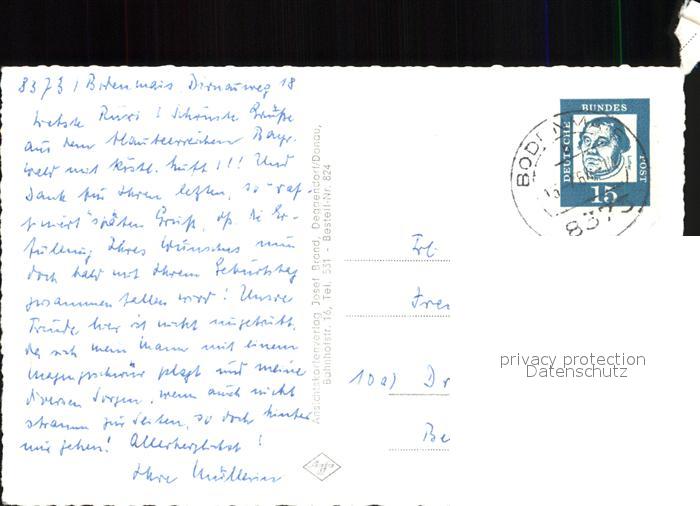 8373 / Bodenmais Dirnauweg 18
Schönste Grüße
aus dem Bayr.
wald mit köstl. Luft!!! Und
Dank für Ihren letzten, so "raf-
finiert" späten Gruß, ob die Er-
füllung Ihres Wunsches nun
doch bald mit Ihrem Geburtstag
zusammen fallen wird? Unsre
Freude hier ist nicht ungetrübt,
da sich mein Mann mit einem
Magengeschwür plagt und meine
diversen Sorgen, wenn auch nicht
stramm zur Seiten, so doch hinter
mir gehen! Allerherzlichst!
Ihre Müllerin
Ansichtskartenverlag Josef Brand, Deggendorf/Donau,
Bahnhofstr. 16, Tel. 531 - Bestell-Nr. 824
Agfa
DEUTSCHE BUNDES POST
15
BODENMAIS
8373
Frl.
10a) Dr
Be
privacy protection
Datenschutz